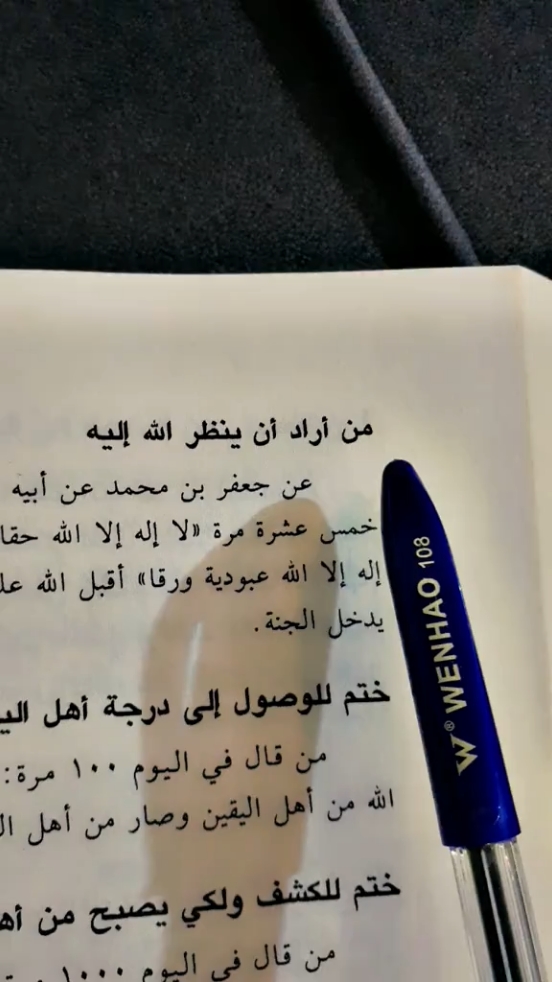 من أراد أن ينظر الله إليه
عن جعفر بن محمد عن أبيه
خمس عشرة مرة «لا إله إلا الله حقا
إله إلا الله عبودية ورقا» أقبل الله
يدخل الجنة.
ختم للوصول إلى درجة أهل
من قال في اليوم ١٠٠ مرة:
الله من أهل اليقين وصار من أهل
ختم للكشف ولكي يصبح من
من قال في اليوم ١٠٠٠
W® WENHAO 108